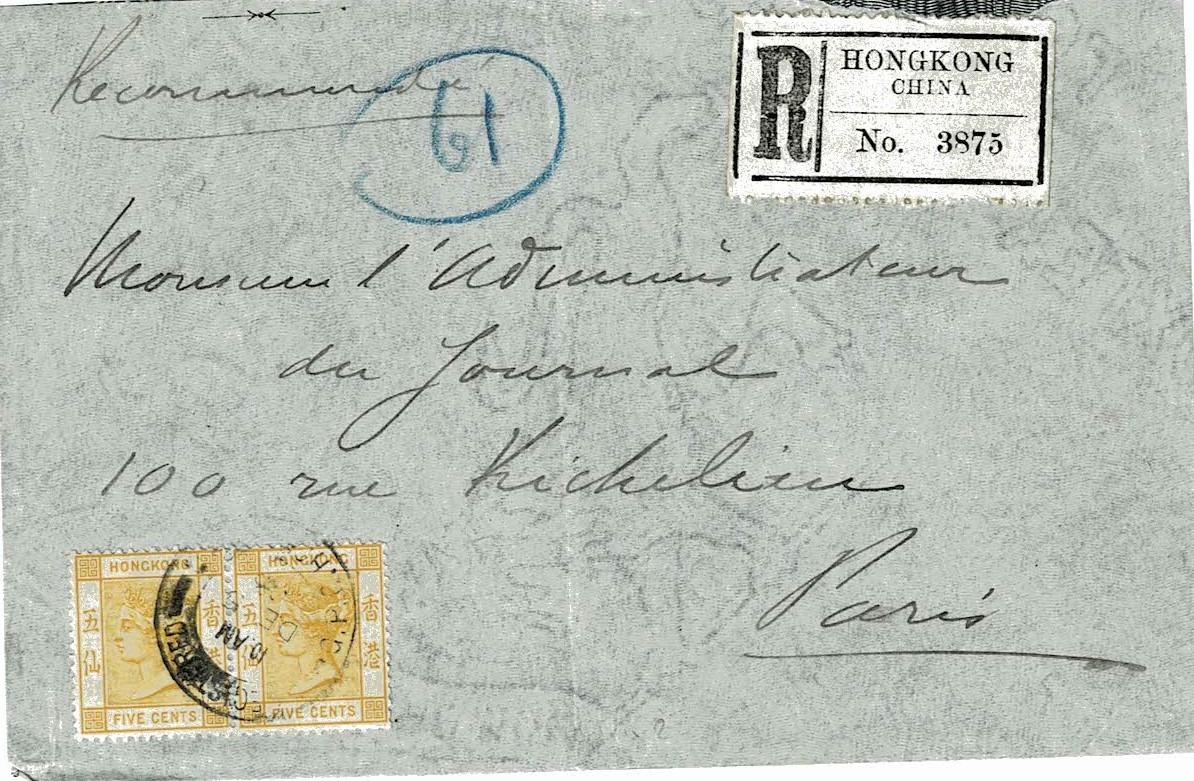 Recommandé
61
R
HONGKONG
CHINA
No. 3875
Monsieur l'Administrateur
du Journal
100 rue Richelieu
Paris
HONGKONG
五仙
香港
FIVE CENTS
HONGKONG
仙
香港
FIVE CENTS
10 AM
DE